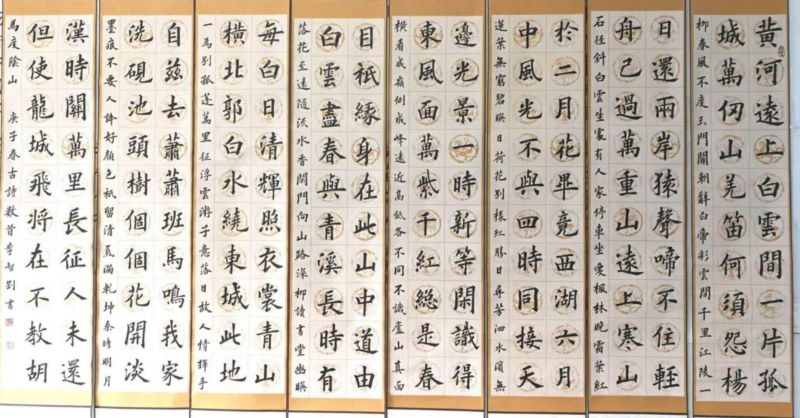 黃河遠上白雲間一片孤
城萬仞山羌笛何須怨楊
柳春風不度玉門關朝辭白帝彩雲間千里江陵一
日還兩岸猿聲啼不住輕
舟已過萬重山遠上寒山
石徑斜白雲生處有人家停車坐愛楓林晚霜葉紅
於二月花畢竟西湖六月
中風光不與四時同接天
蓮葉無窮碧暎日荷花別樣紅勝日尋芳泗水濱無
邊光景一時新等閑識得
東風面萬紫千紅緫是春
橫看成嶺側成峰遠近高低各不同不識廬山真面
目祇緣身在此山中道由
白雲盡春與青溪長時有
落花至遠隨流水香閑門向山路深柳讀書堂幽暎
每白日清輝照衣裳青山
橫北郭白水繞東城此地
一為別孤蓬萬里征浮雲游子意落日故人情揮手
自茲去蕭蕭班馬鳴我家
洗硯池頭樹個個花開淡
墨痕不要人誇好顏色祇留清氣滿乾坤秦時明月
漢時關萬里長征人未還
但使龍城飛將在不教胡
馬度陰山 庚子春古詩數首李智劉書